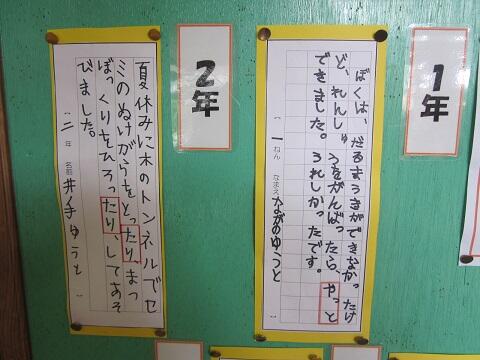 1年
ぼくは、だるまうきができなかったけ
ど、れんしゅうをがんばったら、やっと
できました。うれしかったです。
一ねん なまえ ながのゆうと
2年
夏休みに木のトンネルでセ
ミのぬけがらをとったり、まつ
ぼっくりをひろったり、してあそ
びました。
二年 名前 井手ゆうと